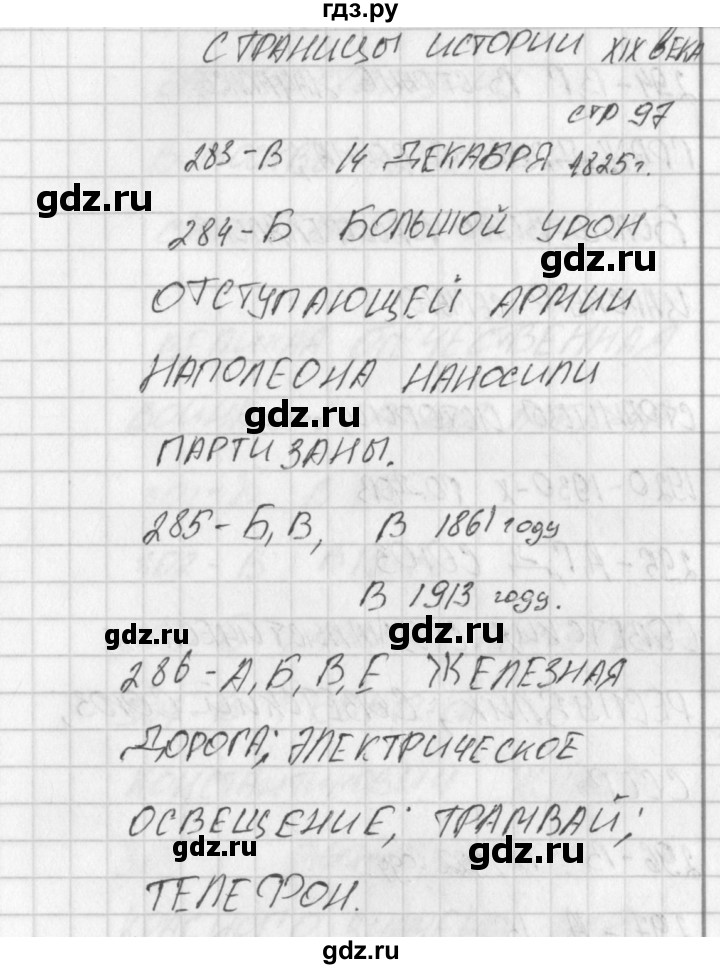 гдз.ру
СТРАНИЦЫ ИСТОРИИ XIX ВЕКА
стр 97
283-В 14 ДЕКАБРЯ 1825г.
gdz.ru
284-Б БОЛЬШОЙ УРОН
gdz.ru
ОТСТУПАЮЩЕЙ АРМИИ
НАПОЛЕОНА НАНОСИЛИ
gdz.ru
ПАРТИЗАНЫ.
285-Б,В, В 1861 году
В 1913 году.
gdz.ru gdz.ru
286-А,Б,В,Е ЖЕЛЕЗНАЯ
ДОРОГА; ЭЛЕКТРИЧЕСКОЕ
ОСВЕЩЕНИЕ; ТРАМВАЙ;
gdz.ru gdz.ru
ТЕЛЕФОН.
gdz.ru